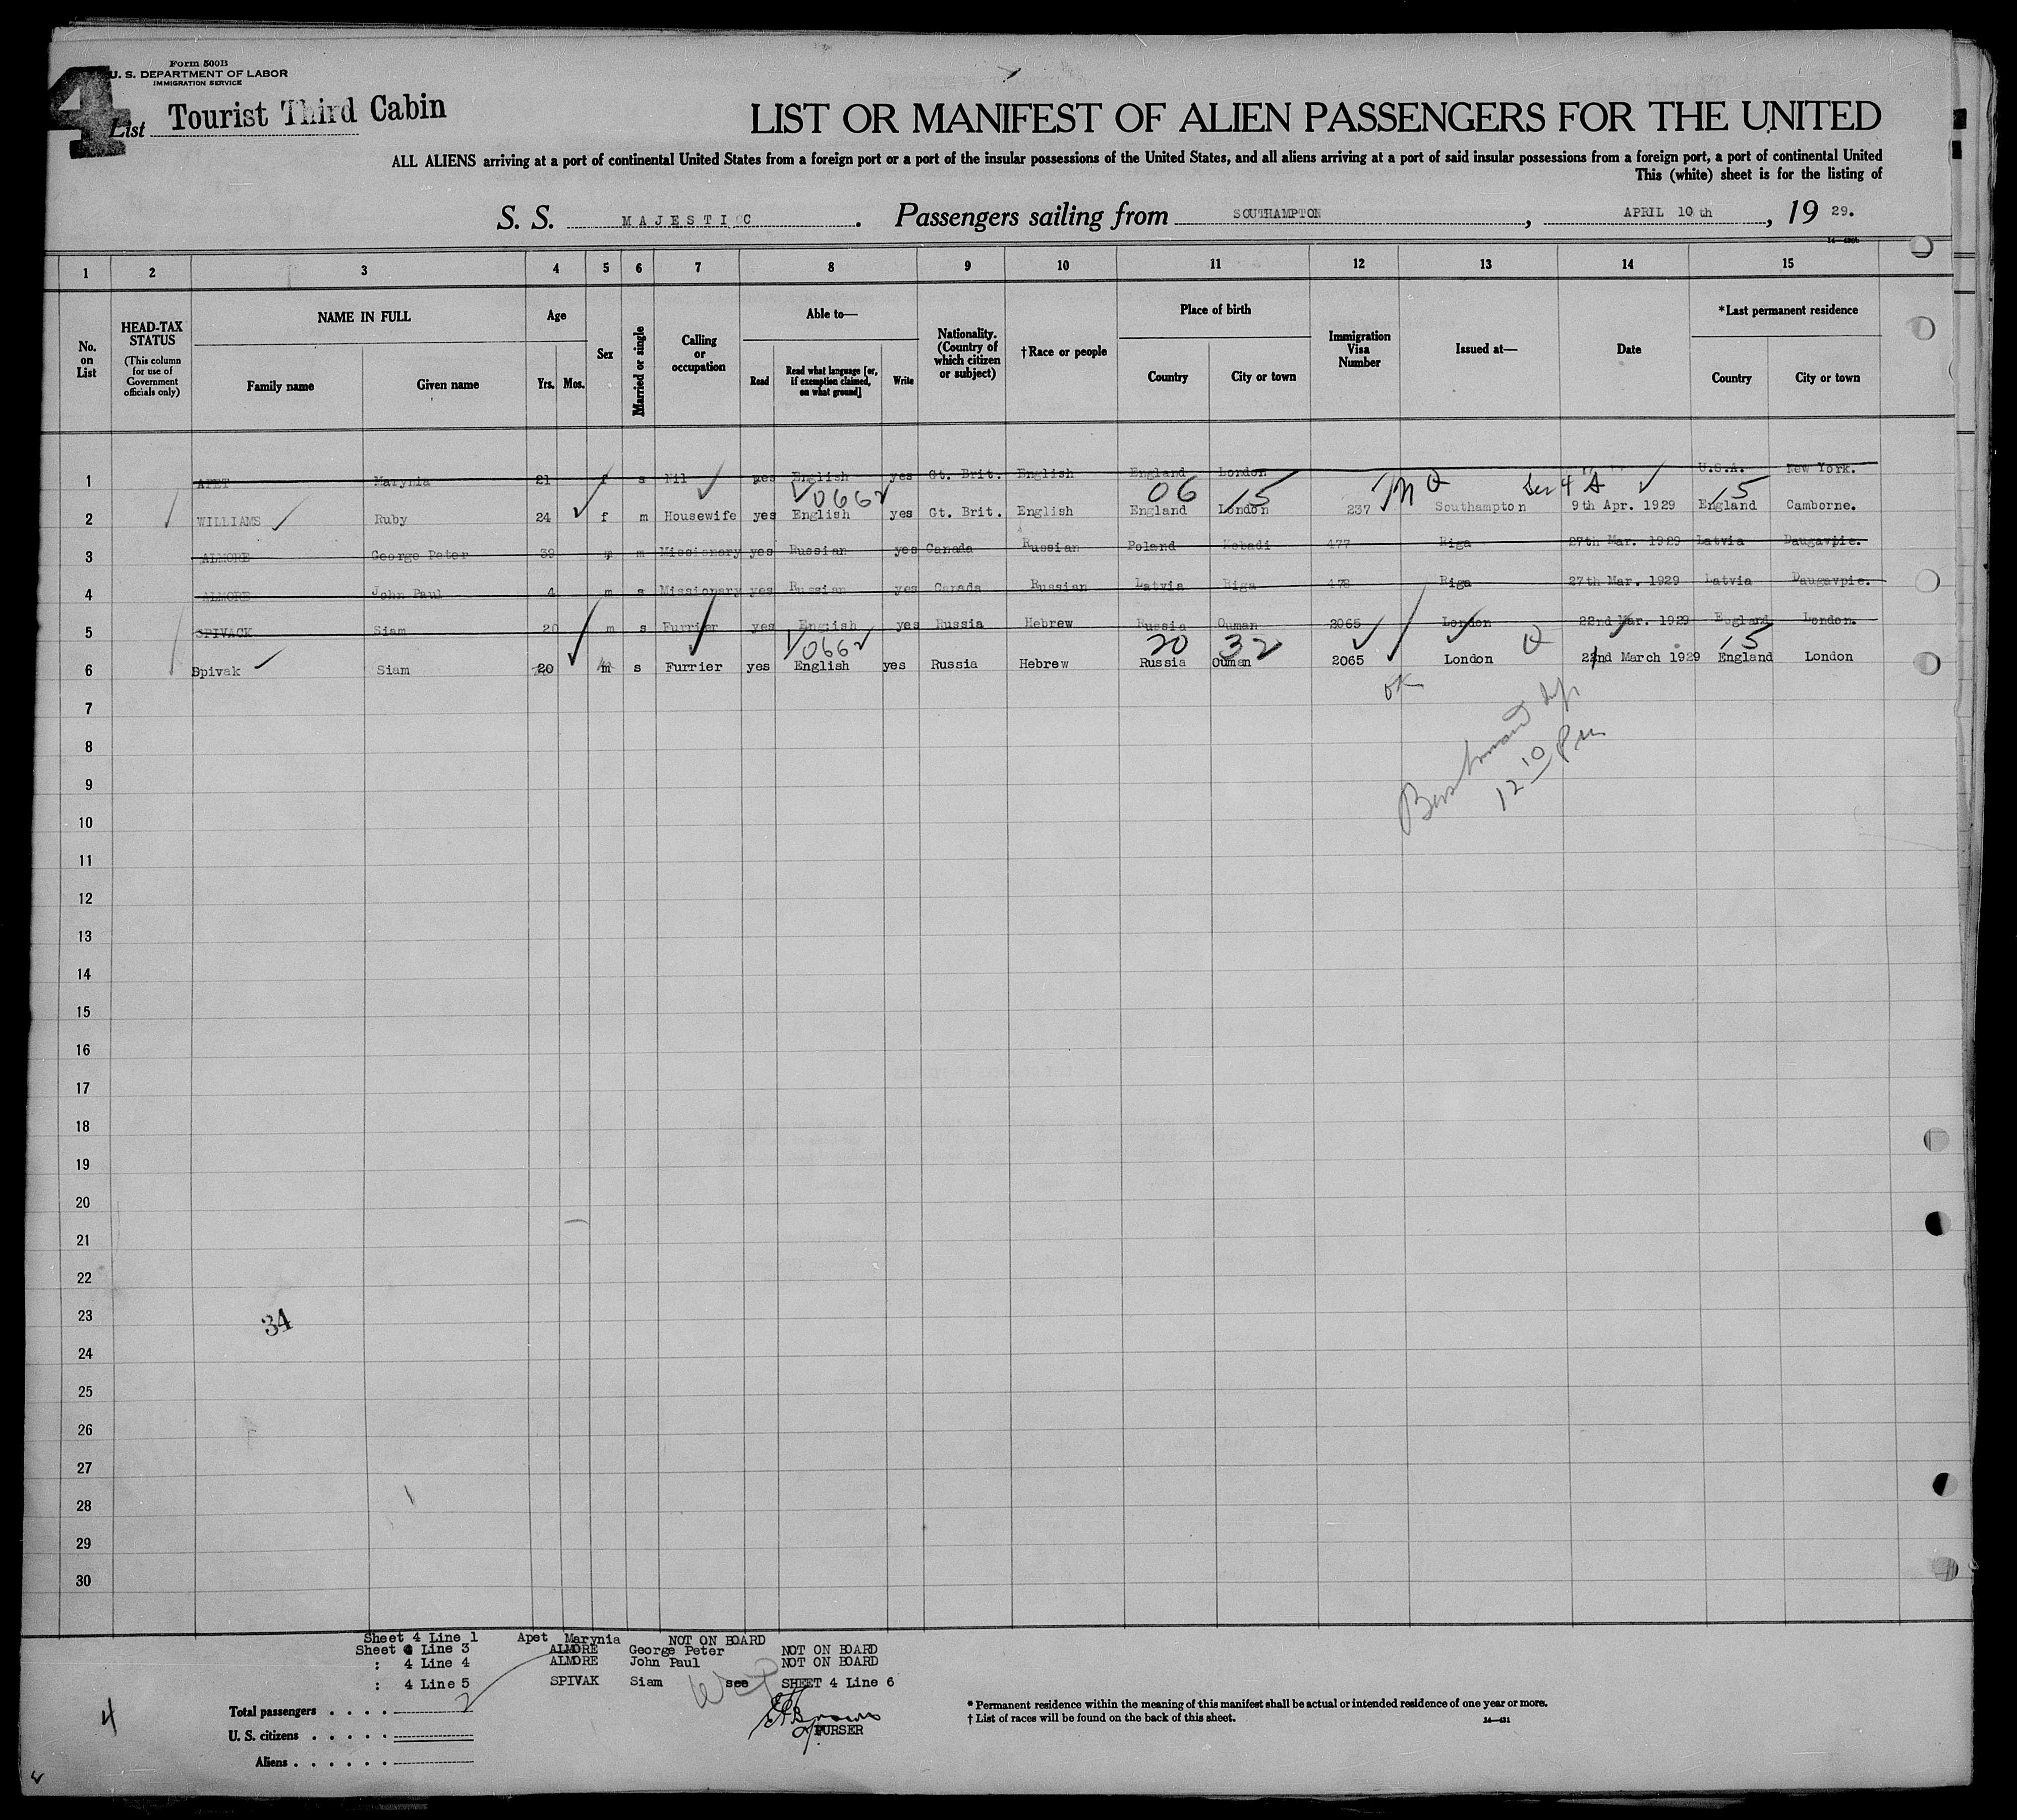 Form 500B
U. S. DEPARTMENT OF LABOR
IMMIGRATION SERVICE
4
List Tourist Third Cabin
LIST OR MANIFEST OF ALIEN PASSENGERS FOR THE UNITED
ALL ALIENS arriving at a port of continental United States from a foreign port or a port of the insular possessions of the United States, and all aliens arriving at a port of said insular possessions from a foreign port, a port of continental United
This (white) sheet is for the listing of
S. S. MAJESTIC . Passengers sailing from SOUTHAMPTON , APRIL 10th , 19 29.
1 2 3 4 5 6 7 8 9 10 11 12 13 14 15
No. on List
HEAD-TAX STATUS (This column for use of Government officials only)
NAME IN FULL
Family name Given name
Age
Yrs. Mos.
Sex
Married or single
Calling or occupation
Able to—
Read Read what language [or, if exemption claimed, on what ground] Write
Nationality. (Country of which citizen or subject)
†Race or people
Place of birth
Country City or town
Immigration Visa Number
Issued at—
Date
*Last permanent residence
Country City or town
1 APET Marynia 21 f s Nil yes English yes Gt. Brit. English England London U.S.A. New York.
0662 06 15 15
2 WILLIAMS Ruby 24 f m Housewife yes English yes Gt. Brit. English England London 237 Southampton 9th Apr. 1929 England Camborne.
3 ALMORE George Peter 39 m m Missionary yes Russian yes Canada Russian Poland Kobadi 477 Riga 27th Mar. 1929 Latvia Daugavpie.
4 ALMORE John Paul 4 m s Missionary yes Russian yes Canada Russian Latvia Riga 478 Riga 27th Mar. 1929 Latvia Daugavpie.
5 SPIVACK Siam 20 m s Furrier yes English yes Russia Hebrew Russia Ouman 2065 London 22nd Mar. 1929 England London.
0662 20 32 15
6 Spivak Siam 20 m s Furrier yes English yes Russia Hebrew Russia Ouman 2065 London 22nd March 1929 England London
OK
12 10 Pm
7
8
9
10
11
12
13
14
15
16
17
18
19
20
21
22
23
34
24
25
26
27
28
29
30
Sheet 4 Line 1 Apet Marynia NOT ON BOARD
Sheet 4 Line 3 ALMORE George Peter NOT ON BOARD
: 4 Line 4 ALMORE John Paul NOT ON BOARD
: 4 Line 5 SPIVAK Siam see SHEET 4 Line 6
Total passengers . . . . 2
U. S. citizens . . . . .
Aliens . . . . . .
4
PURSER
* Permanent residence within the meaning of this manifest shall be actual or intended residence of one year or more.
† List of races will be found on the back of this sheet.